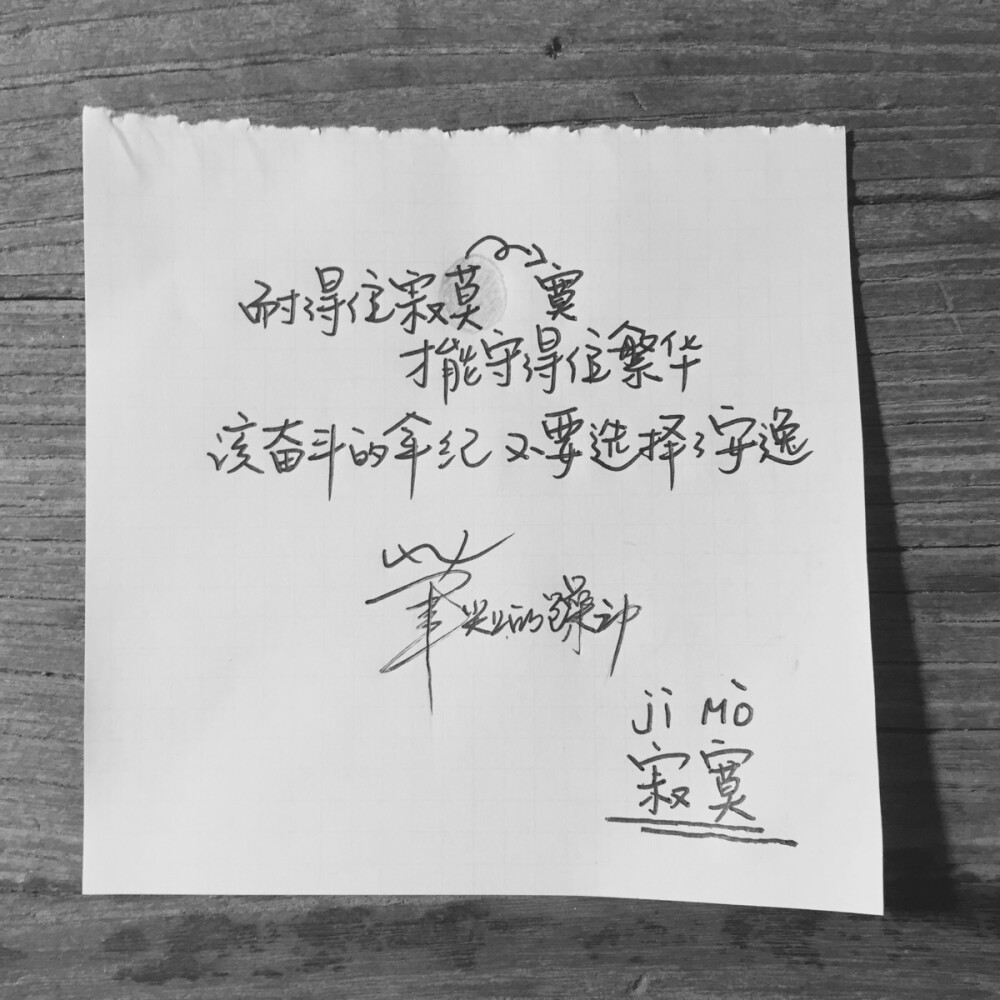 耐得住寂莫 寞
才能守得住繁华
该奋斗的年纪 不要选择了安逸
筆尖上的躁动
jì Mò
寂寞